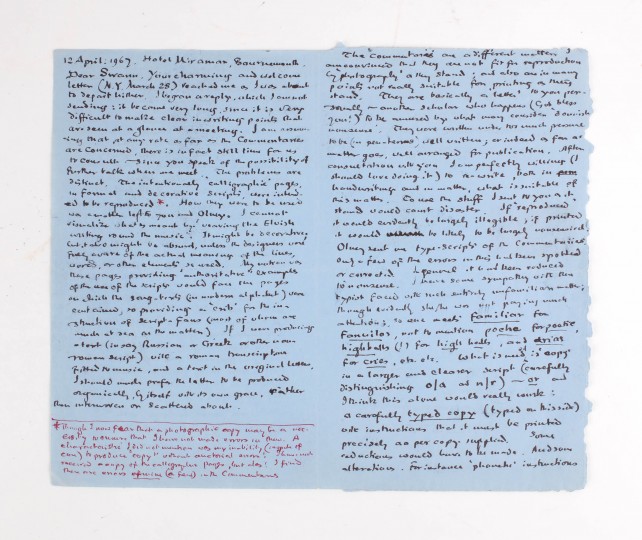 12 April, 1967. Hotel Miramar, Bournemouth.
Dear Swann, Your charming and welcome
letter (N.Y. March 28) reached me as I was about
to depart hither. I began a reply, which I am not
sending: it became very long, since it is very
difficult to make clear in writing points that
are seen at a glance at a meeting. I am assum-
ing that at any rate as far as the Commentaries
are concerned, there is in fact still time for us
to consult — since you speak of the possibility of
further talk when we meet. The problems are
distinct. The intentionally 'calligraphic' pages,
in formal and decorative script, were intend-
ed to be reproduced*. How they were to be used
was a matter left to you and Olney. I cannot
visualize what is meant by 'weaving the Elvish
writing round the music'. It might be decorative,
but, also might be absurd, unless the designers were
fully aware of the actual meaning of the lines,
words, or other elements so used. My notion was
these pages providing 'authoritative' examples
of the use of the scripts would face the pages
on which the song-texts (in modern alphabet) were
contained, so providing a 'crib' for the in-
struction of script-fans (most of whom are
much at sea on the matter). If I were providing
a text (in say Russian or Greek or other non-
roman script) with a roman transcription
fitted to music, and a text in the original letters,
I should much prefer the latter to be produced
organically, by itself with its own grace, rather
than interwoven or scattered about.
*Though I now fear that a photographic copy may be a nec-
essity, because that I have not made errors in them. A
characteristic I did not mention was my inability (
) to produce 'copy' without unnoticed errors. I have not
received a copy of the calligraphic pages, but alas! I find
there are errors (a few) in the Commentaries
The 'Commentaries' are a different matter. I
announced that they are not fit for reproduction
by 'photography' as they stand; but also are in many
points not really suitable for printing as they
stand. They are basically a 'letter' to you per-
sonally — another scholar who happens (God bless
you!) to be amused by what many consider donnish
nonsense. They were written under too much pressure
to be (in pen terms) well written, or indeed as far as
matter goes, well arranged for publication. After
consultation with you I am perfectly willing (I
should love doing it) to re-write both in
handwriting and in matter, what is suitable of
this matter. To use the stuff I sent to you as it
stands would court disaster. If 'reproduced'
it would evidently be largely illegible; if printed
it would be likely to be largely nonsensical.
Olney sent me 'type-scripts' of the Commentaries
only a few of the errors in this had been spotted
or corrected. In general it had been reduced
to nonsense. I have some sympathy with the
typist faced with such entirely unfamiliar matter;
though evidently she/he was not paying much
attention, as one meets Familiar for
Familiar, not to mention poche for poetic,
highballs (!) for high hells, and arias
for cries, etc. etc. What is need is 'copy'
in a larger and clearer script (carefully
distinguishing o/a and n/r) — or and
I think this alone would really work:
a carefully typed copy (typed on this side)
with instructions that it must be printed
precisely as per copy supplied. Some
reductions would have to be made. And some
alterations. For instance 'phonetic' instructions